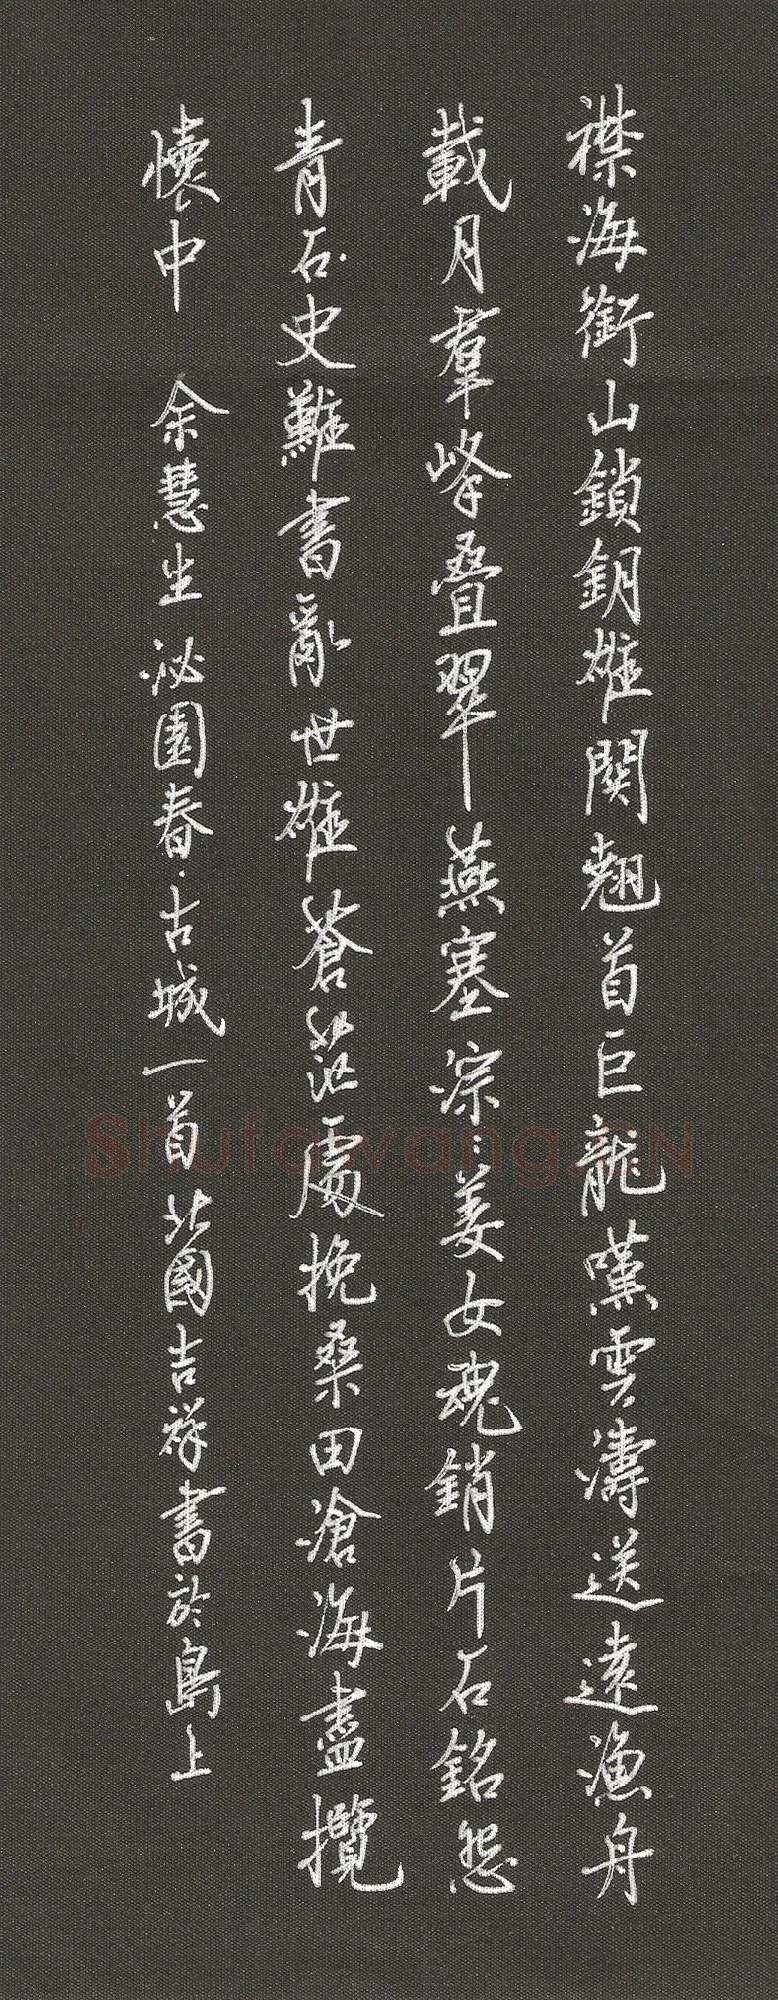 襟海銜山鎖鑰雄関翹首巨龍嘆雲濤送遠漁舟
載月羣峰叠翠燕塞淙〻姜女魂銷片石銘怨
青石史難書亂世雄蒼茫處挽桑田滄海盡攬
懷中 余慧生沁園春·古城一首北國吉祥書於島上
Shufawang.CN